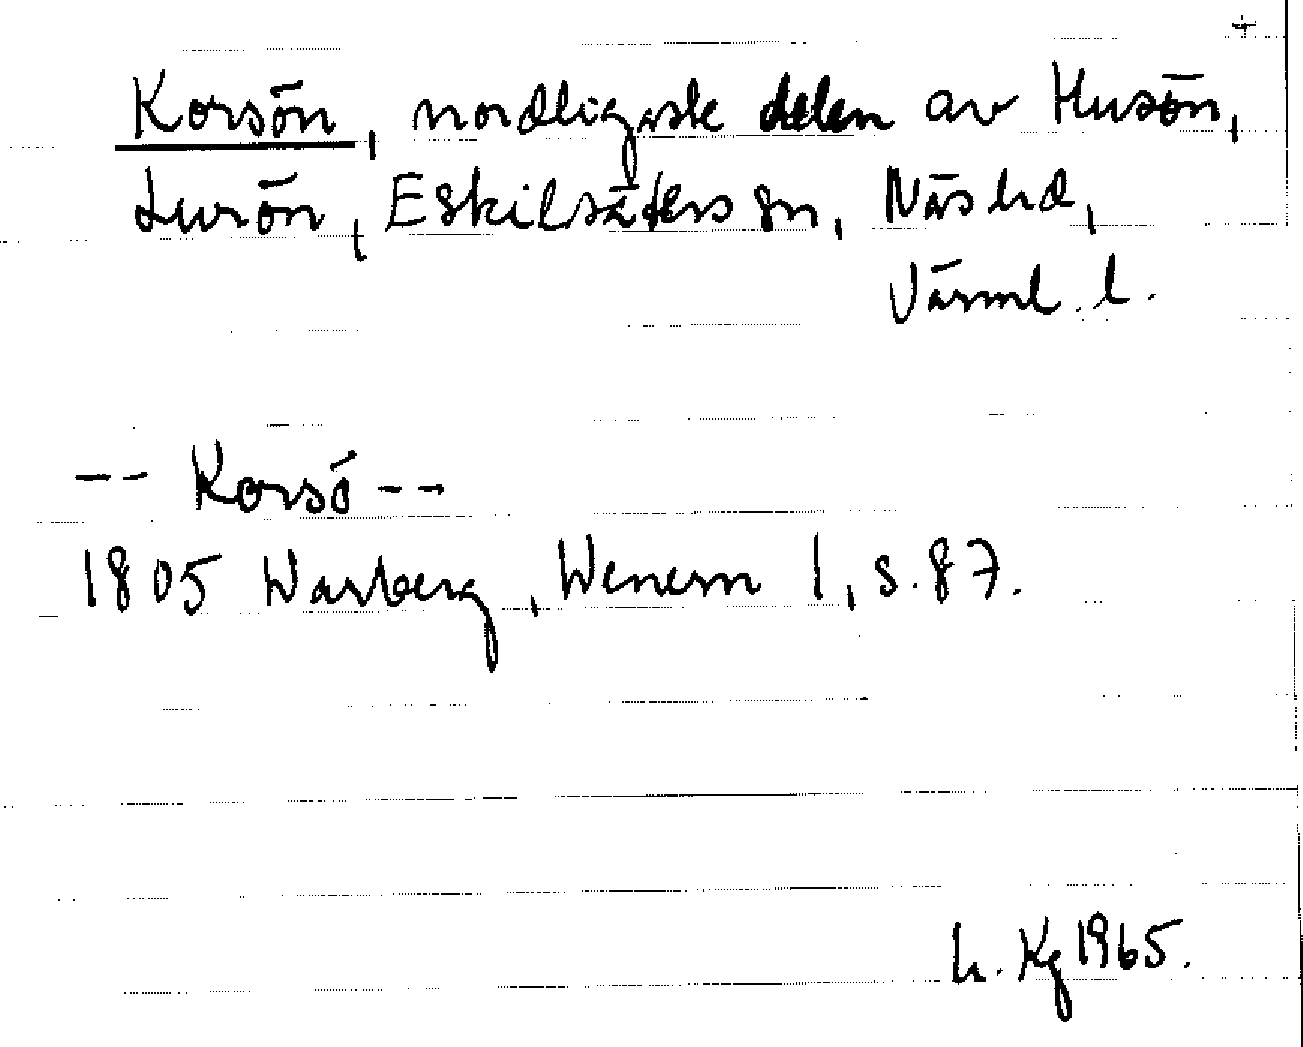 +
Korsön, nordligaste delen av Husön,
Lurön, Eskilsäters sn, Näs hd,
Värml. l.
-- Korsö --
1805 Warberg, Wenern 1, s. 87.
L. Kg 1965.